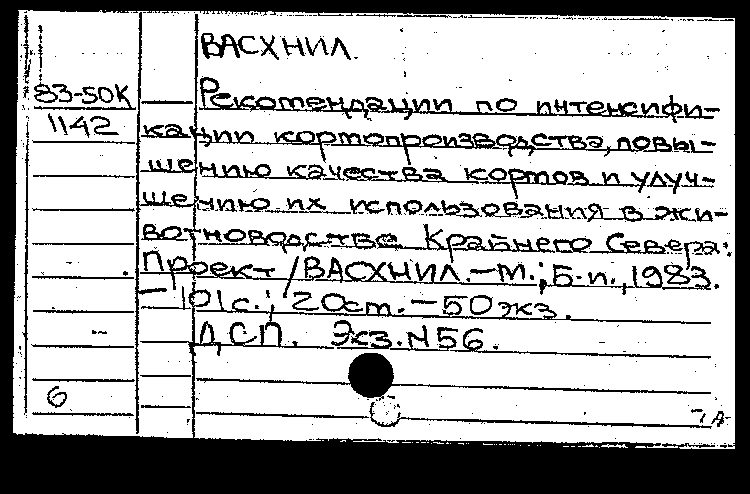 ВАСХНИЛ.
83-50К
1142
Рекомендации по интенсифи-
кации кормопроизводства, повы-
шению качества кормов и улуч-
шению их использования в жи-
вотноводстве Крайнего Севера:
Проект / ВАСХНИЛ. - М.; Б.и., 1983.
- 101 с.; 20 см. - 50 экз.
ДСП. Экз. N 56.
6